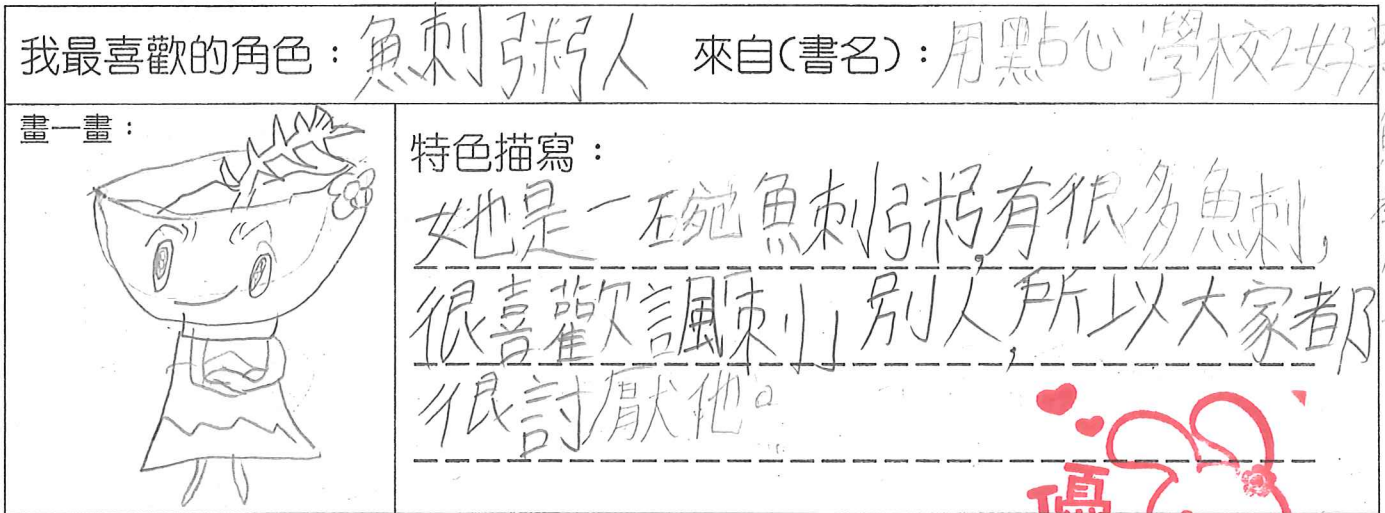 我最喜歡的角色：魚刺粥人 來自(書名)：用點心學校2好
畫一畫：
特色描寫：
她是一碗魚刺粥,有很多魚刺,
很喜歡諷刺別人,所以大家都
很討厭他。
優